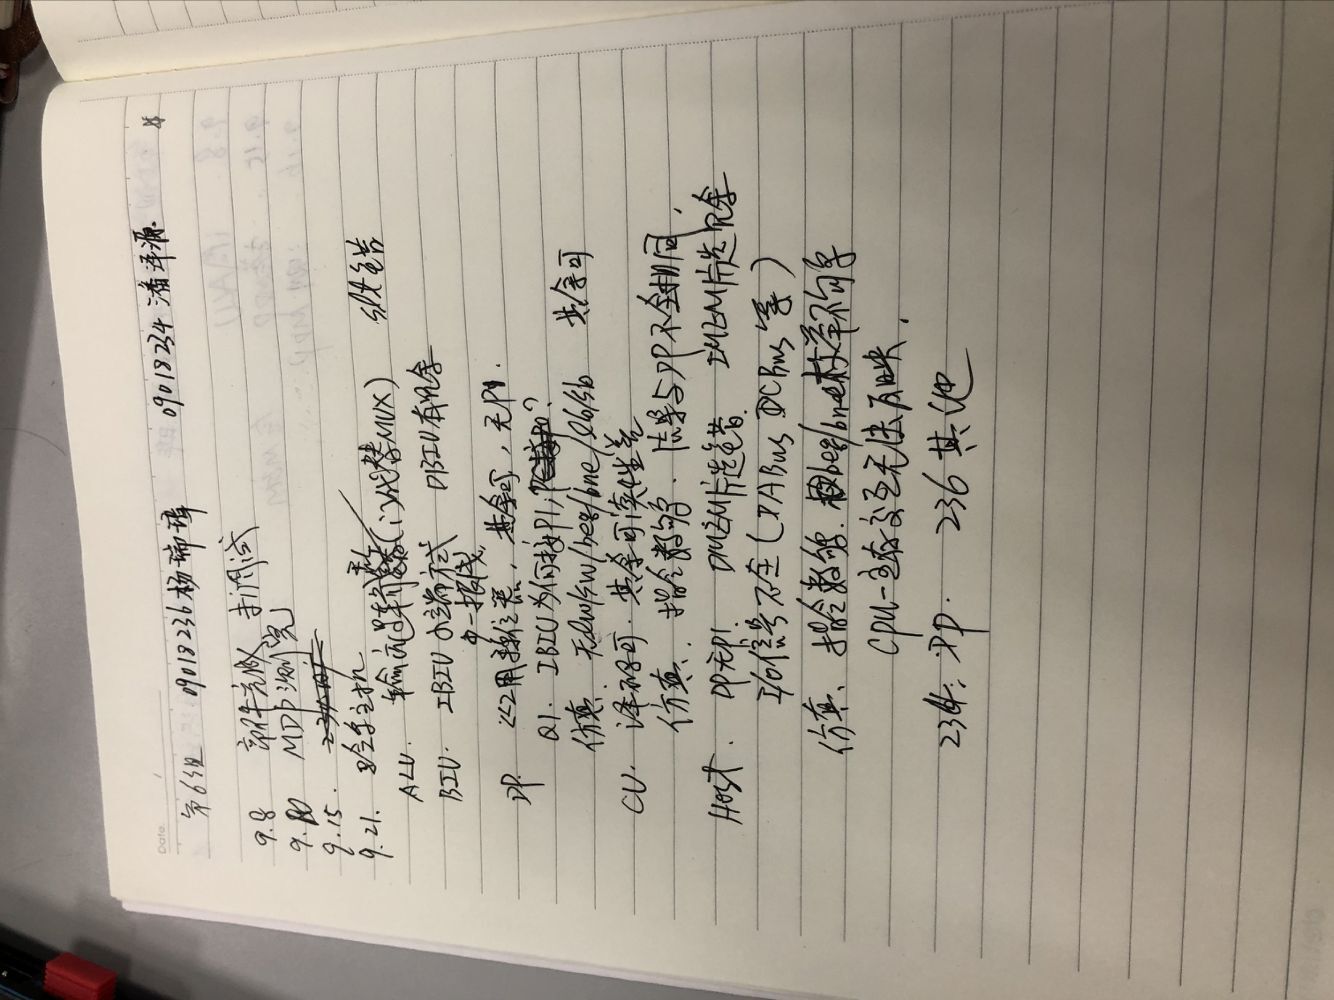 Date /
第6组 09018236 杨瑞 09018234 潘泽源
9.8 部件完成，未调试
9.10 MDP测完
9.15.
9.21. 验全主机
ALU. 输出逻辑 (代替MUX) slt错
BIU. IBIU小端方式 DBIU有冗余
少一根线
DP. <<2用移位器，其余可，无P1.
Q1. IBIU为何接P1,
仿真、无lw/sw/beq/bne/lb/sb 其余可
CU. 译码可. 其余可读性差
仿真、指令数够. 信号与DP不全相同，
Host. DP无P1. DMEM片选错、IMEM片选冗余
I/O信号不全(DABus DCBus等)
仿真、指令数够. beq/bne枚举不够
CPU-主存交互无法反映.
234: DP. 236 其他